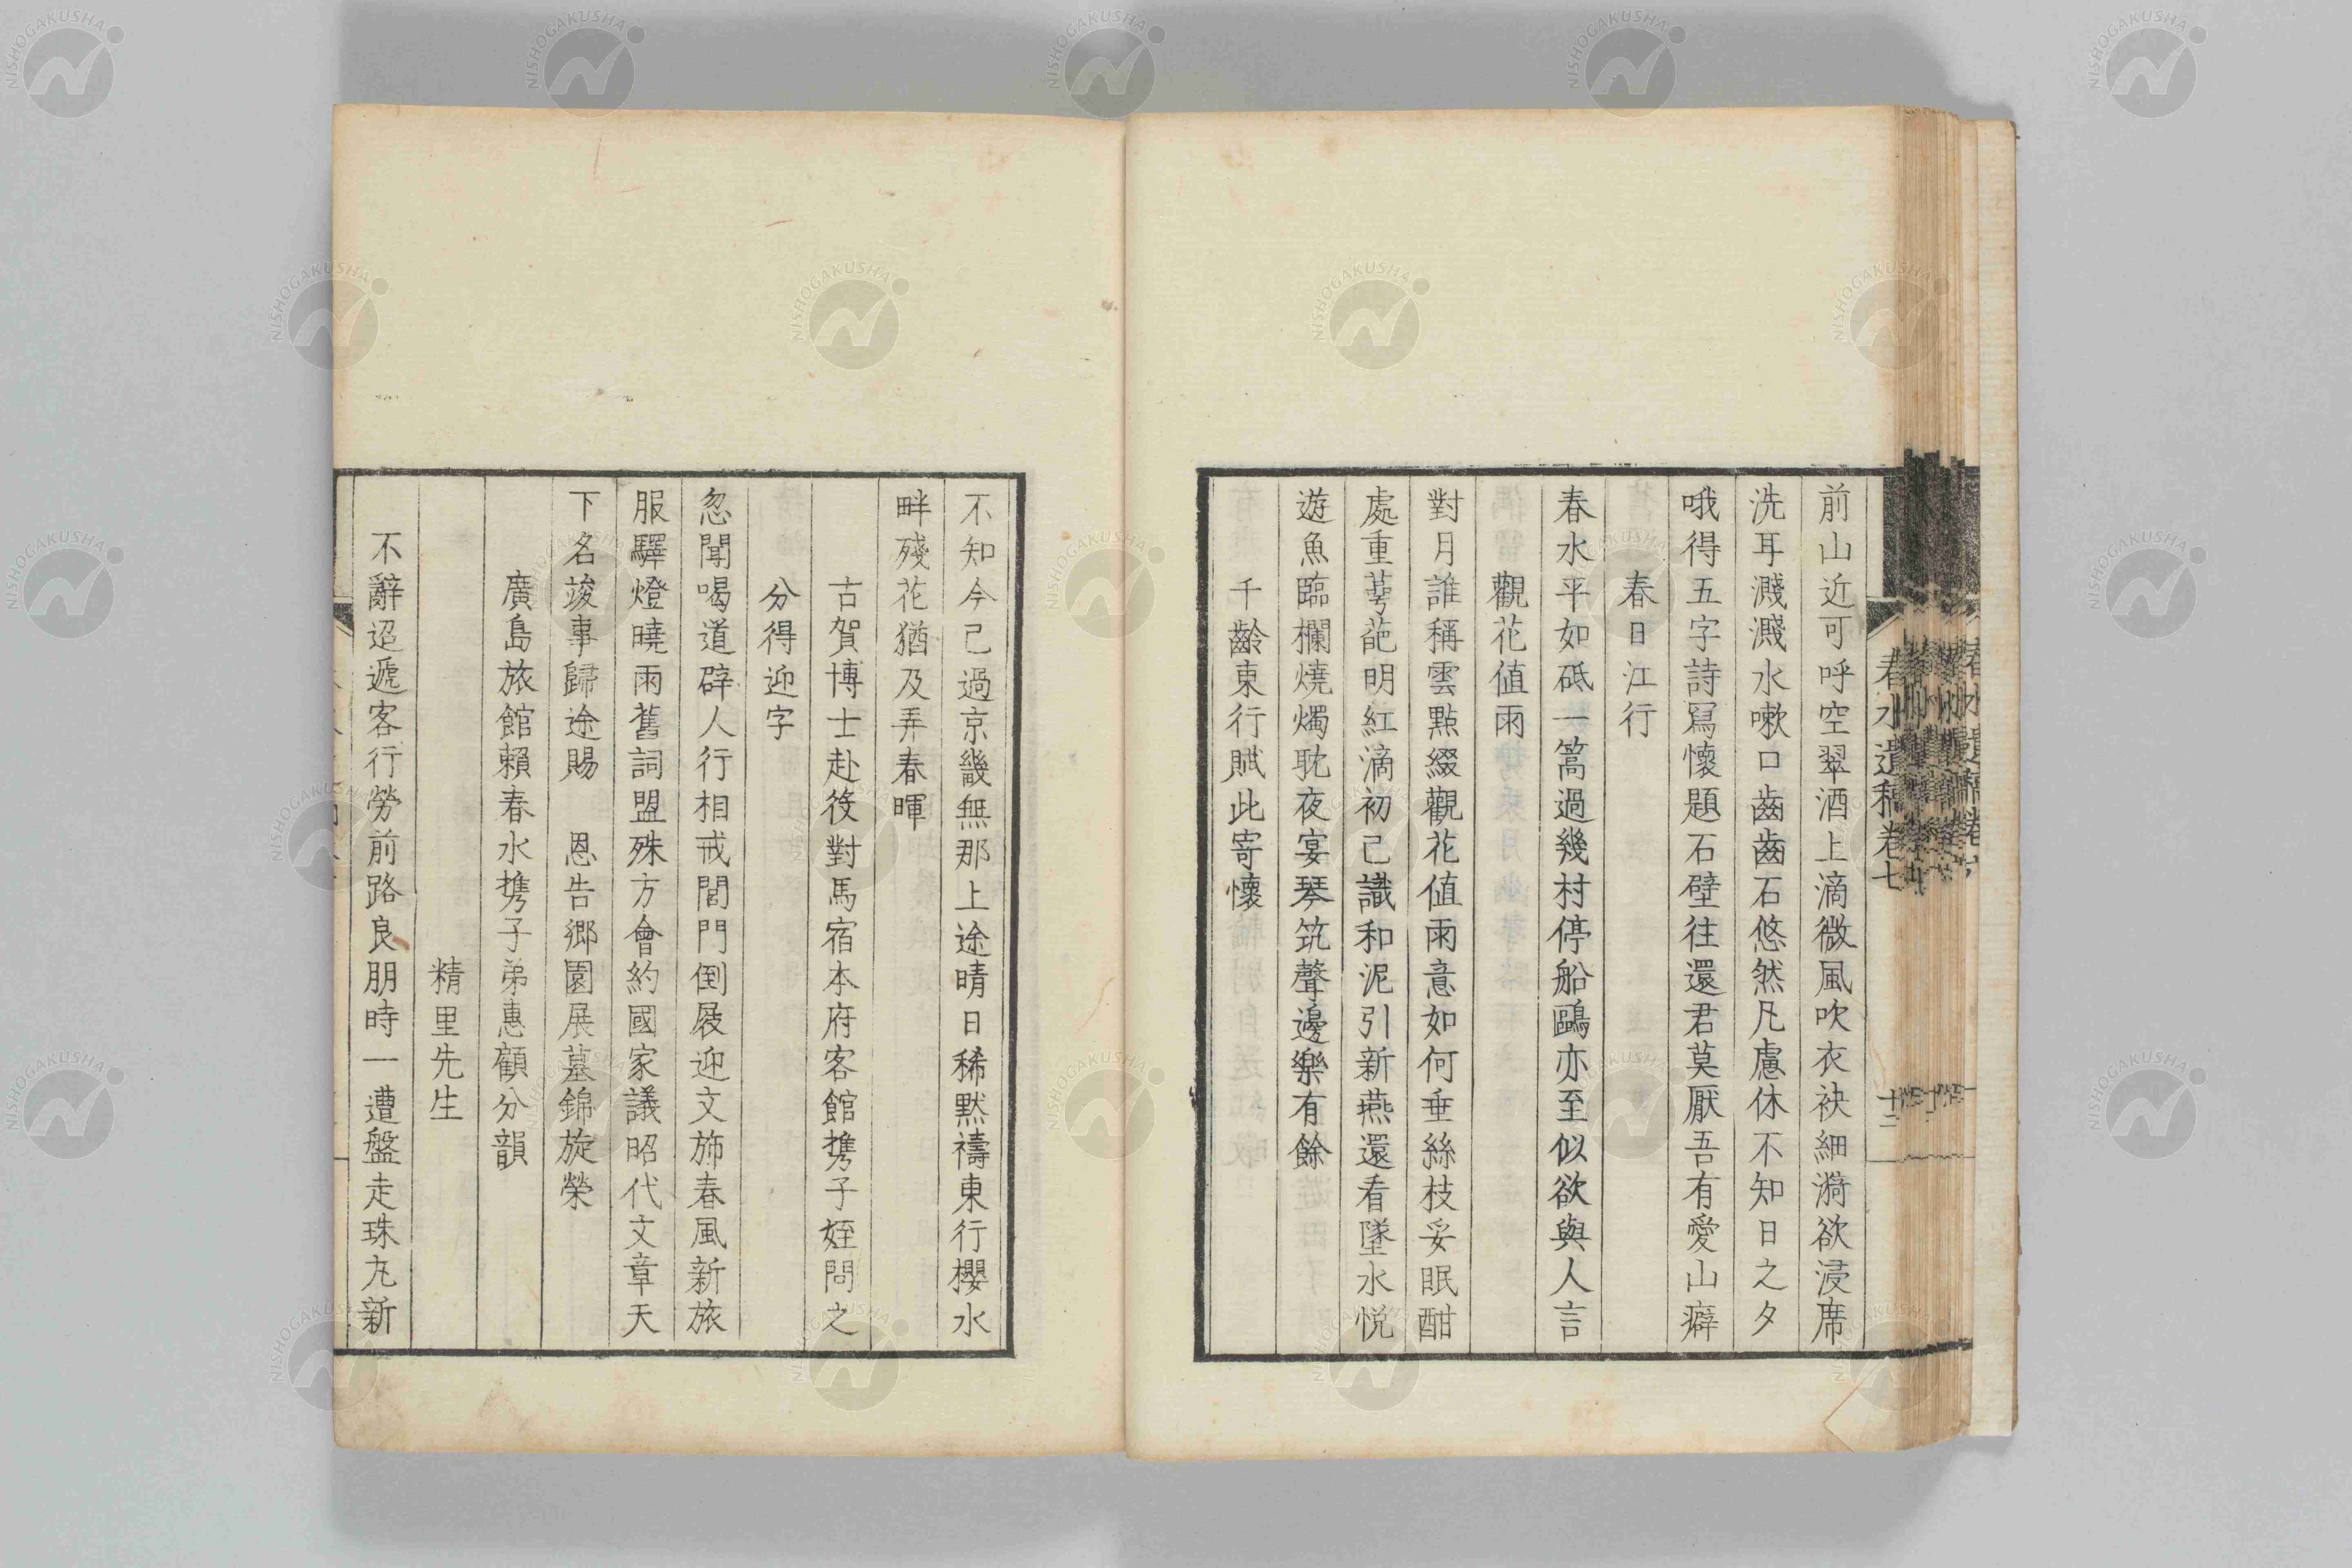 前山近可呼空翠酒上滴微風吹衣袂細漪欲浸席
洗耳濺濺水嗽口齒齒石悠然凡慮休不知日之夕
哦得五字詩寫懷題石壁往還君莫厭吾有愛山癖
春日江行
春水平如砥一篙過幾村停船鷗亦至似欲與人言
觀花値雨
對月誰稱雲點綴觀花値雨意如何垂絲枝妥眠酣
處重萼葩明紅滴初已識和泥引新燕還看墜水悦
遊魚臨欄燒燭耽夜宴琴筑聲邊樂有餘
千齡東行賦此寄懷
春水遺稿卷七
十二
不知今已過京畿無那上途晴日稀黙禱東行櫻水
畔殘花猶及弄春暉
古賀博士赴役對馬宿本府客館携子姪問之
分得迎字
忽聞喝道辟人行相戒閽門倒屐迎文斾春風新旅
服驛燈曉雨舊詞盟殊方會約國家議昭代文章天
下名竣事歸途賜 恩告郷園展墓錦旋榮
廣島旅館賴春水携子弟惠顧分韻
精里先生
不辭迢遞客行勞前路良朋時一遭盤走珠丸新
NISHOGAKUSHA